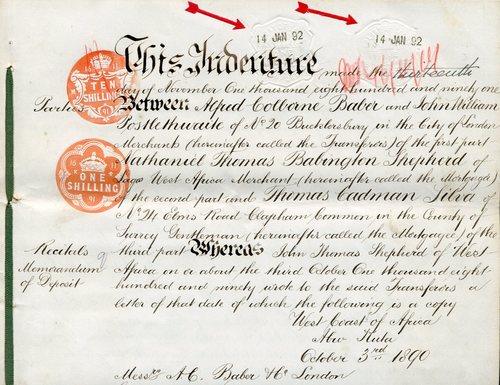 14 JAN 92
14 JAN 92
This Indenture made the thirteenth
day of November One thousand eight hundred and ninety one
Parties Between Alfred Colborne Baber and John William
Postlethwaite of No 20 Bucklersbury in the City of London
Merchants (hereinafter called the Transferors) of the first part
Nathaniel Thomas Babington Shepherd of
Lagos West Africa Merchant (hereinafter called the Mortgagor)
of the second part and Thomas Cadman Silva of
Elms Road Clapham Common in the County of
Surrey Gentleman (hereinafter called the Mortgagee) of the
Recitals third part Whereas John Thomas Shepherd of West
Memorandum Africa on or about the third October One thousand eight
of Deposit hundred and ninety wrote to the said Transferors a
letter of that date of which the following is a copy
West Coast of Africa
October 3rd 1890
Messrs A. C. Baber & Co London
TEN
SHILLINGS
91
ONE
SHILLING
91